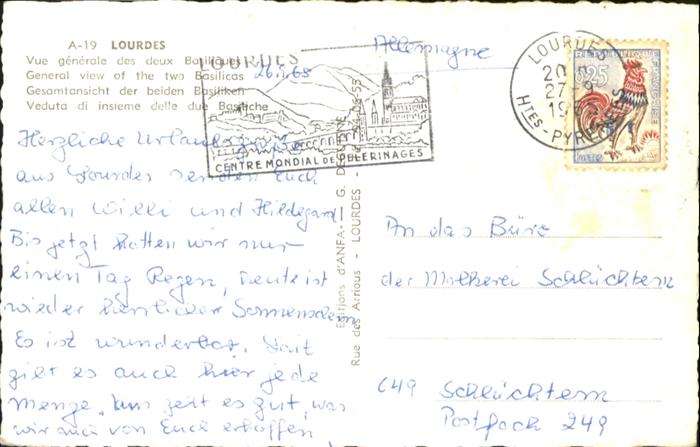 A-19 LOURDES
Vue générale des deux Basiliques
General view of the two Basilicas
Gesamtansicht der beiden Basiliken
Veduta di insieme delle due Basiliche
LOURDES
CENTRE MONDIAL DE PÈLERINAGES
Allemagne
LOURDES
27-9
HTES-PYRÉNÉES
0,25
Herzliche Urlaubsgrüße
aus Lourdes senden Euch
allen Willi und Hildegard!
Bis jetzt hatten wir nur
einen Tag Regen, heute ist
wieder herrlicher Sonnenschein
Es ist wunderbar,
gibt es auch hier jede
Menge. Uns geht es gut, was
wir auch von Euch erhoffen
Editions d'ANFA - G.
Rue des Arrious - LOURDES -
An das Büro
der Molkerei Schlüchtern
649 Schlüchtern
Postfach 249